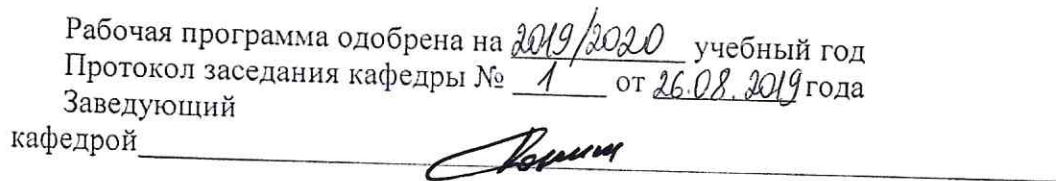 Рабочая программа одобрена на 2019/2020 учебный год
Протокол заседания кафедры № 1 от 26.08.2019 года
Заведующий
кафедрой